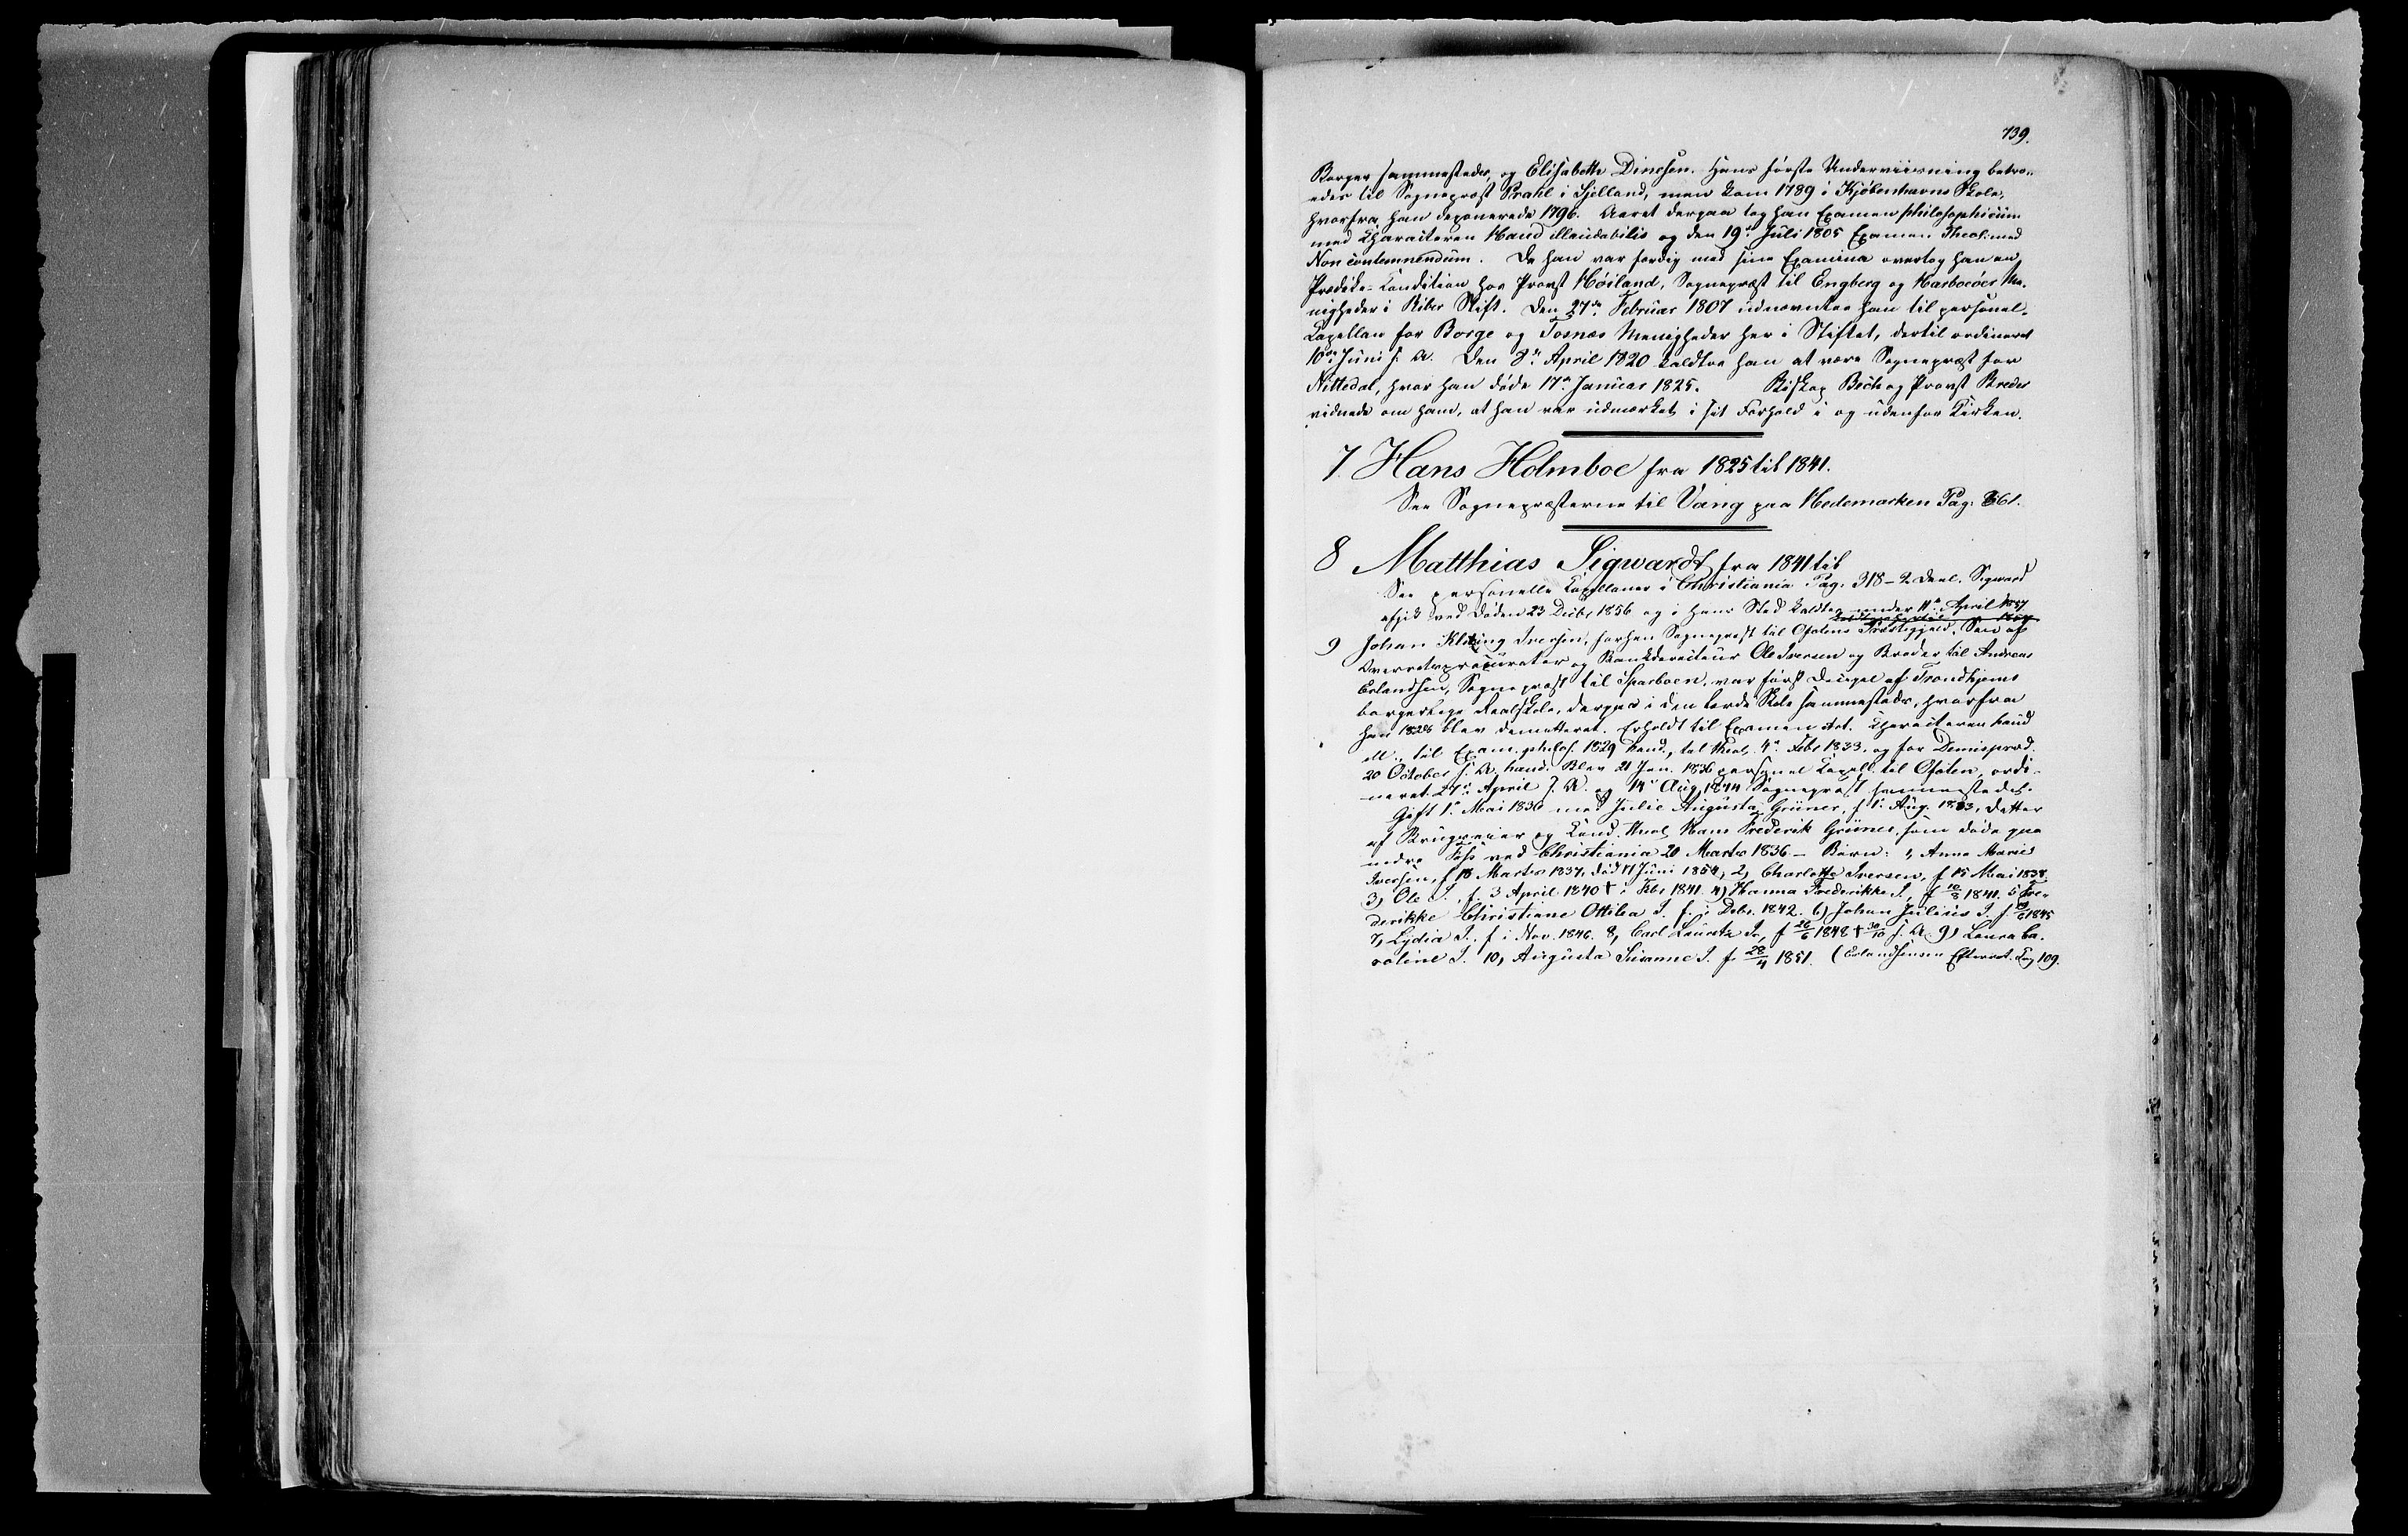 739.
Borger sammesteds, og Elisabeth Dinesen. Hans første Underviisning betro-
edes til Sognepræst Prahl i Sjelland, men kom 1789 i Kjøbenhavns Skole,
hvorfra han deponerede 1796. Aaret derpaa tog han Examen philosophicum
med Charakteren Haud illaudabilis og den 19de Juli 1805 Examen Theol: med
Non contemnendum. Da han var færdig med sine Examina overtog han en
Prædike-Condition hos Provst Høiland, Sognepræst til Engberg og Harboöes Me-
nigheder i Ribes Stift. Den 27de Februar 1807 udnævntes han til personel-
Capellan for Borge og Tosnæs Menigheder her i Stiftet, dertil ordineret
10de Juni s. A. Den 8de April 1820 kaldtes han at være Sognepræst for
Nittedal, hvor han døde 17de Januar 1825. Biskop Bech og Provst Breder
vidnede om ham, at han var udmærket i sit Forhold i og udenfor Kirken.
7. Hans Holmboe fra 1825 til 1841.
See Sognepræsterne til Vang paa Hedemarken Pag: 861.
8 Matthias Sigwardt fra 1841 til
See personelle Capellaner i Christiania Pag. 318 - 2 Deel. Sigward
afgik ved Døden 23 Decbr 1856 og i hans Sted kaldtes under 11te April 1857
9 Johan Klüwing Iversen, forhen Sognepræst til Ofotens Præstegjeld. Søn af
Overretsprocurator og Bankdirecteur Ole Iversen og Broder til Andreas
Erlandsen, Sognepræst til Sparboen, var først Discipel af Trondhjems
borgerlige Realskole, derpaa i den lærde Skole sammesteds, hvorfra
han 1828 blev demitteret. Erholdt til Examen Art. Charakteren haud
ill., til Exam. philos. 1829 haud., til theol. 4de Febr 1833. og for Dimispræd.
20 October s. A. haud. Blev 21 Jan. 1836 personel Capell. til Ofoten, ordi-
neret 27de April s. A. og 14de Aug 1844 Sognepræst sammesteds.
Gift 1te Mai 1836 med Julie Augusta Grüner, f 1te Aug. 1813, Datter
af Brugseier og Cand. theol Hans Frederik Grüner, som døde paa
nedre Foss ved Christiania 20 Marts 1836 - Børn: 1, Anne Marie
Iversen, f 18 Marts 1837, død 17 Juni 1854, 2, Charlotte Iversen, f 15 Mai 1838
3, Ole I., f. 3 April 1840 † i Febr 1841. 4) Hanna Frederikke I., f 10/8 1841. 5 Fre-
derikke Christiane Ottilia I. f. i Decbr. 1842. 6) Johan Julius I. f. 1845
7, Lydia I. f i Nov. 1846. 8, Carl Lauritz I., f 26/6 1848 † 30/10 s. A. 9) Laura Ca-
roline I. 10, Augusta Susanne I. f 28/4 1851. (Erlandsens Efterret. Pag 109.